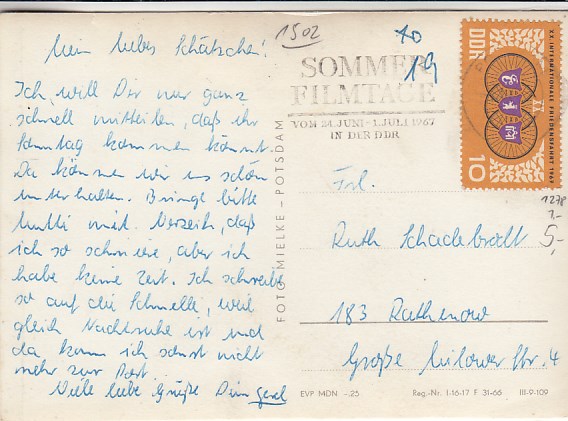 Mein liebes Schätzchen!
Ich will Dir nur ganz
schnell mitteilen, daß ihr
Sonntag kommen könnt.
Da können wir uns schön
unterhalten. Bringe bitte
Mutti mit. Verzeih, daß
ich so schmiere, aber ich
habe keine Zeit. Ich schreibe
so auf die Schnelle, weil
gleich Nachtruhe ist und
da kann ich sonst nicht
mehr zur Post.
Viele liebe Grüße Dein
FOTO MIELKE – POTSDAM
1502
19
SOMMER
FILMTAGE
VOM 24. JUNI - 1. JULI 1967
IN DER DDR
DDR
XX. INTERNATIONALE FRIEDENSFAHRT 1967
XX
10
1278
1,-
5,-
Frl.
Ruth Schadebrodt
183 Rathenow
Große Milower Str. 4
EVP MDN -.25
Reg.-Nr. I-16-17 F 31-66
III-9-109